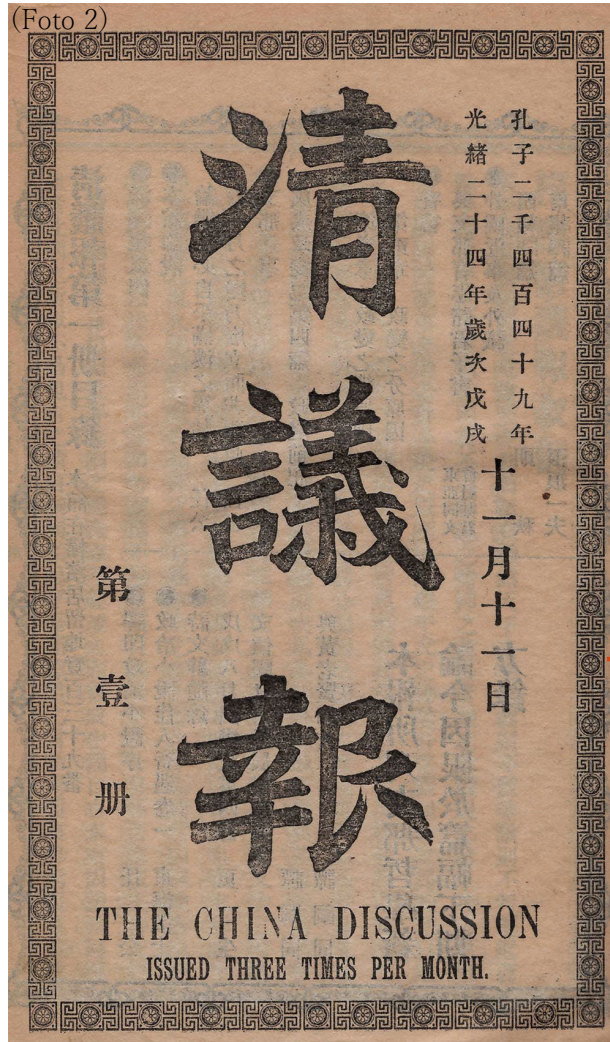 (Foto 2)
孔子二千四百四十九年
光緒二十四年歲次戊戌
十一月十一日
清議報
第壹册
THE CHINA DISCUSSION
ISSUED THREE TIMES PER MONTH.